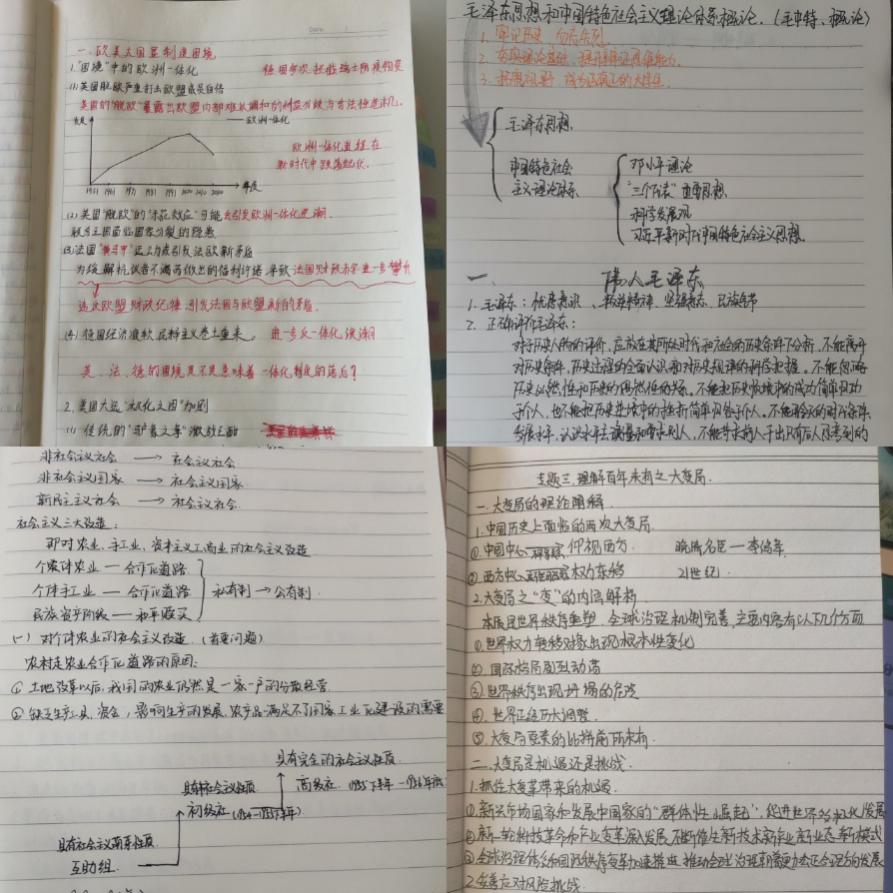 一、欧美大国显制度困境
1."困境"中的欧洲一体化
(1)英国脱欧严重打击欧盟成员自信
英国的"脱欧"暴露出欧盟内部难以调和的利益分歧与身份认
发展
欧洲一体化
欧洲一体化进程在
新时代中跌荡起伏。
年度
(2)英国"脱欧"的"示范效应"可能会引发欧洲一体化退潮
(3)法国"黄马甲"运动或引发法欧新矛盾
法国财政赤字进一步攀升
造成欧盟财政纪律,引发法国与欧盟新的矛盾。
(4)德国经济疲软,民粹主义卷土重来。进一步反一体化浪潮
英、法、德的困境是不是意味着一体化制度的落后?
2.美国大选"极化之困"加剧
毛泽东思想和中国特色社会主义理论体系概论.(毛中特、概论)
毛泽东思想
中国特色社会
主义理论体系
邓小平理论
"三个代表"重要思想
科学发展观
习近平新时代中国特色社会主义思想.
一、伟人毛泽东
1.毛泽东:忧患意识、
2.正确评价毛泽东:
对于历史人物的评价,应放在其所处时代和社会的历史条件下分析,不能离开
对历史条件、历史过程的全面认识和对历史规律的科学把握。不能忽略
历史必然性和历史的偶然性的关系。不能把历史顺境中的成功简单归功
于个人,也不能把历史逆境中的挫折简单归咎于个人。不能用今天的时代条件、
发展水平、认识水平去衡量和要求前人,不能苛求前人干出只有后人才能干的
非社会主义社会 → 社会主义社会
非社会主义国家 → 社会主义国家
新民主主义社会 → 社会主义社会
社会主义三大改造:
即对农业、手工业、资本主义工商业的社会主义改造
个体农业 — 合作化道路
个体手工业 — 合作化道路
私有制 → 公有制
民族资产阶级 — 和平赎买
(一)对个体农业的社会主义改造(首要问题)
农村走农业合作化道路的原因:
①土地改革以后,我国的农业仍然是一家一户的分散经营
②缺乏生产工具、资金,影响生产的发展,农产品满足不了国家工业化建设的需要
具有完全的社会主义性质
高级社
具有半社会主义性质
初级社
具有社会主义萌芽性质
互助组
专题三.理解百年未有之大变局.
一.大变局的理论阐释.
1.中国历史上面临的两次大变局.
①.中国中心 仰视西方. 晚清名臣—李鸿章.
②.西方中心 权力东移 21世纪.
2.大变局之"变"的内涵解析.
本质是世界秩序重塑,全球治理机制完善,主要内容有以下几个方面
①.世界权力转移对象出现根本性变化
②.国际格局剧烈动荡
③.世界秩序出现 的危险
④.世界正经历大调整.
⑤.大变局要素的 前所未有.
二.大变局是机遇还是挑战.
1.抓住大变革带来的机遇.
①新兴市场国家和发展中国家的"群体性崛起",促进世界多极化发展
②新一轮科技革命和产业变革深入发展,不断催生新技术新产业新业态新模式
③全球治理体系和国际秩序变革加速推进,推动全球治理朝着更加公正合理方向发展
2.妥善应对风险挑战.